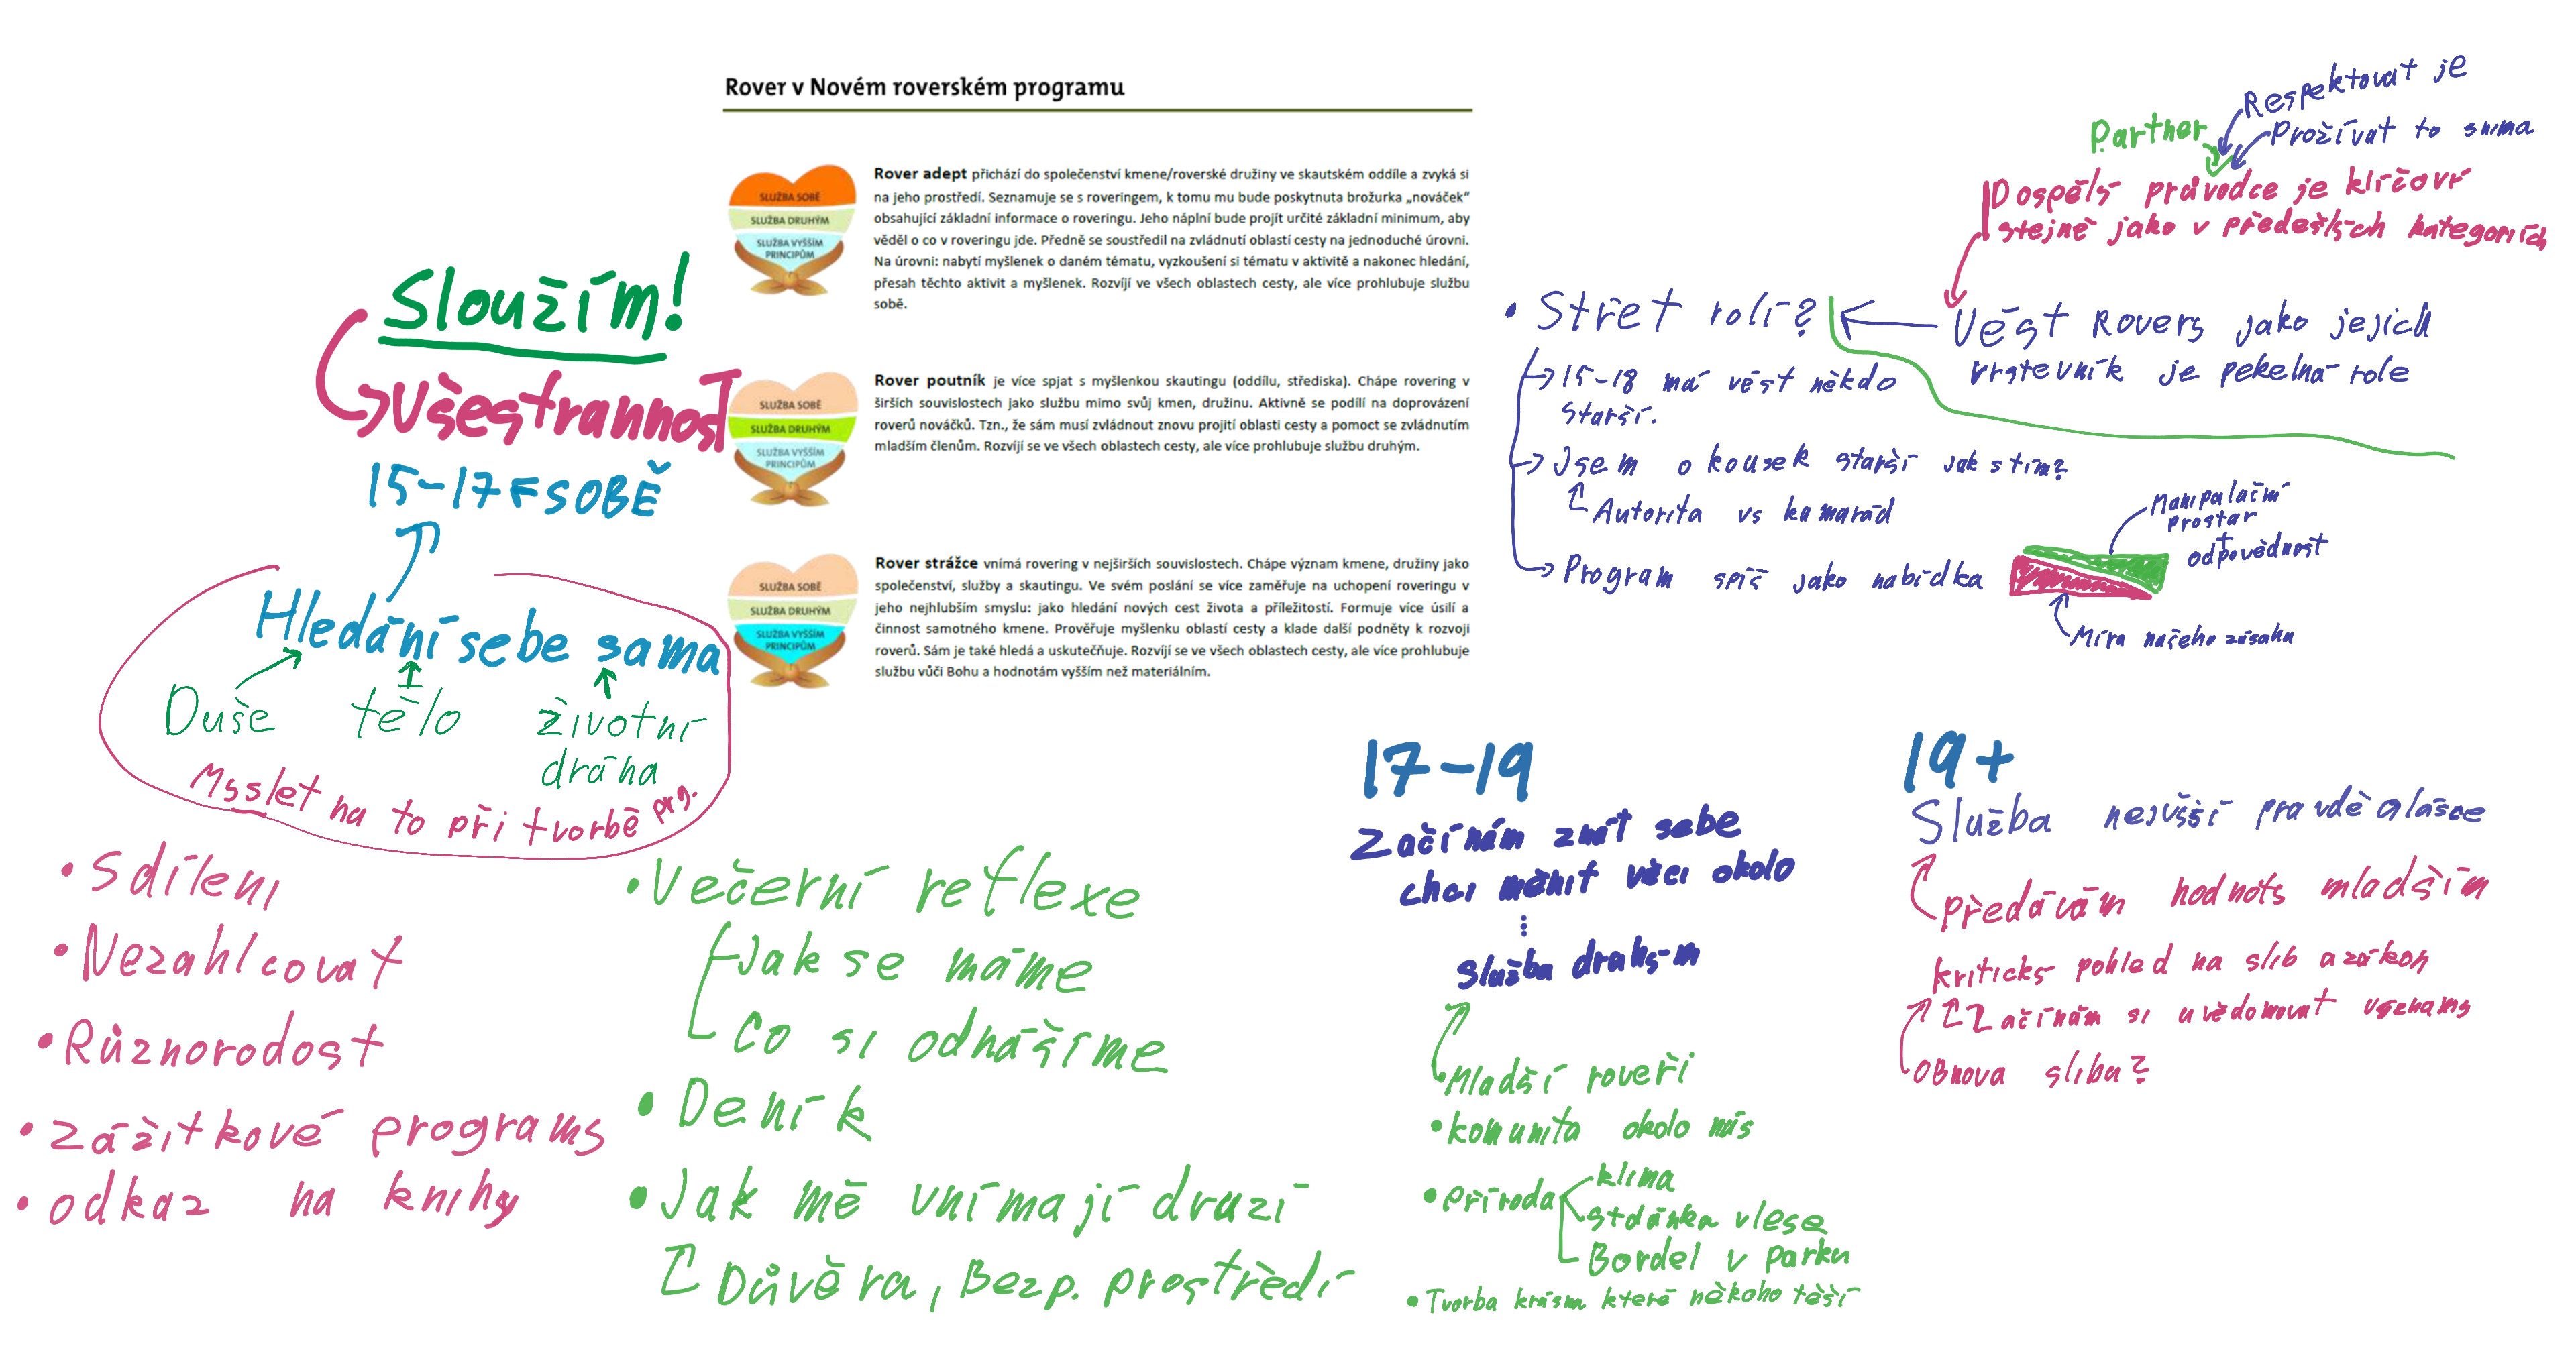 Rover v Novém roverském programu
SLUŽBA SOBĚ
SLUŽBA DRUHÝM
SLUŽBA VYŠŠÍM
PRINCIPŮM
Rover adept přichází do společenství kmene/roverské družiny ve skautském oddíle a zvyká si
na jeho prostředí. Seznamuje se s roveringem, k tomu mu bude poskytnuta brožurka „nováček“
obsahující základní informace o roveringu. Jeho náplní bude projít určité základní minimum, aby
věděl o co v roveringu jde. Předně se soustředil na zvládnutí oblastí cesty na jednoduché úrovni.
Na úrovni: nabytí myšlenek o daném tématu, vyzkoušení si tématu v aktivitě a nakonec hledání,
přesah těchto aktivit a myšlenek. Rozvíjí ve všech oblastech cesty, ale více prohlubuje službu
sobě.
SLUŽBA SOBĚ
SLUŽBA DRUHÝM
SLUŽBA VYŠŠÍM
PRINCIPŮM
Rover poutník je více spjat s myšlenkou skautingu (oddílu, střediska). Chápe rovering v
širších souvislostech jako službu mimo svůj kmen, družinu. Aktivně se podílí na doprovázení
roverů nováčků. Tzn., že sám musí zvládnout znovu projití oblasti cesty a pomoct se zvládnutím
mladším členům. Rozvíjí se ve všech oblastech cesty, ale více prohlubuje službu druhým.
SLUŽBA SOBĚ
SLUŽBA DRUHÝM
SLUŽBA VYŠŠÍM
PRINCIPŮM
Rover strážce vnímá rovering v nejširších souvislostech. Chápe význam kmene, družiny jako
společenství, služby a skautingu. Ve svém poslání se více zaměřuje na uchopení roveringu v
jeho nejhlubším smyslu: jako hledání nových cest života a příležitostí. Formuje více úsilí a
činnost samotného kmene. Prověřuje myšlenku oblastí cesty a klade další podněty k rozvoji
roverů. Sám je také hledá a uskutečňuje. Rozvíjí se ve všech oblastech cesty, ale více prohlubuje
službu vůči Bohu a hodnotám vyšším než materiálním.
Sloužím!
Všestrannost
15-17 = SOBĚ
Hledání sebe sama
Duše tělo životní
dráha
Myslet na to při tvorbě prg.
• Sdílení
• Nezahlcovat
• Různorodost
• Zážitkové programy
• odkaz na knihy
• Večerní reflexe
Jak se máme
Co si odnášíme
• Deník
• Jak mě vnímají druzí
Důvěra, Bezp. prostředí
Respektovat je
Partner
Prožívat to s nima
Dospělý průvodce je klíčový
stejně jako v předešlých kategoriích
• Střet rolí?
Vést Rovery jako jejich
vrstevník je pekelná role
15-18 má vést někdo
starší.
Jsem o kousek starší jak s tím?
Autorita vs kamarád
Program spíš jako nabídka
Manipulační
prostor
+
odpovědnost
Míra našeho zásahu
17-19
Začínám znát sebe
chci měnit věci okolo
Služba druhým
• Mladší roveři
• komunita okolo nás
• příroda
klima
studánka v lese
Bordel v parku
• Tvorba krásna které někoho těší
19+
Služba nejvyšší pravdě a lásce
předávám hodnoty mladším
kritický pohled na slib a zákon
Začínám si uvědomovat významy
OBnova slibu?